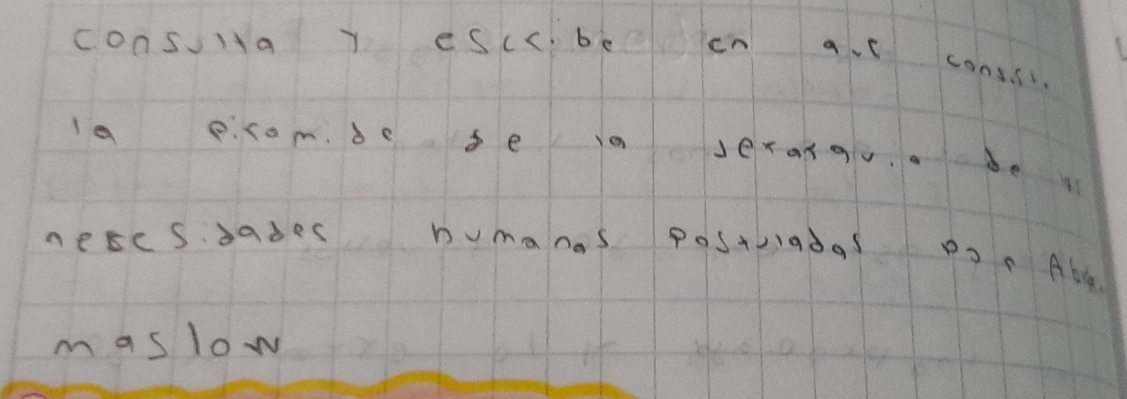 consulta y escribe en que consiste
la piramide de la jerarquia de las
nesecsidades humanas postuladas por
maslow